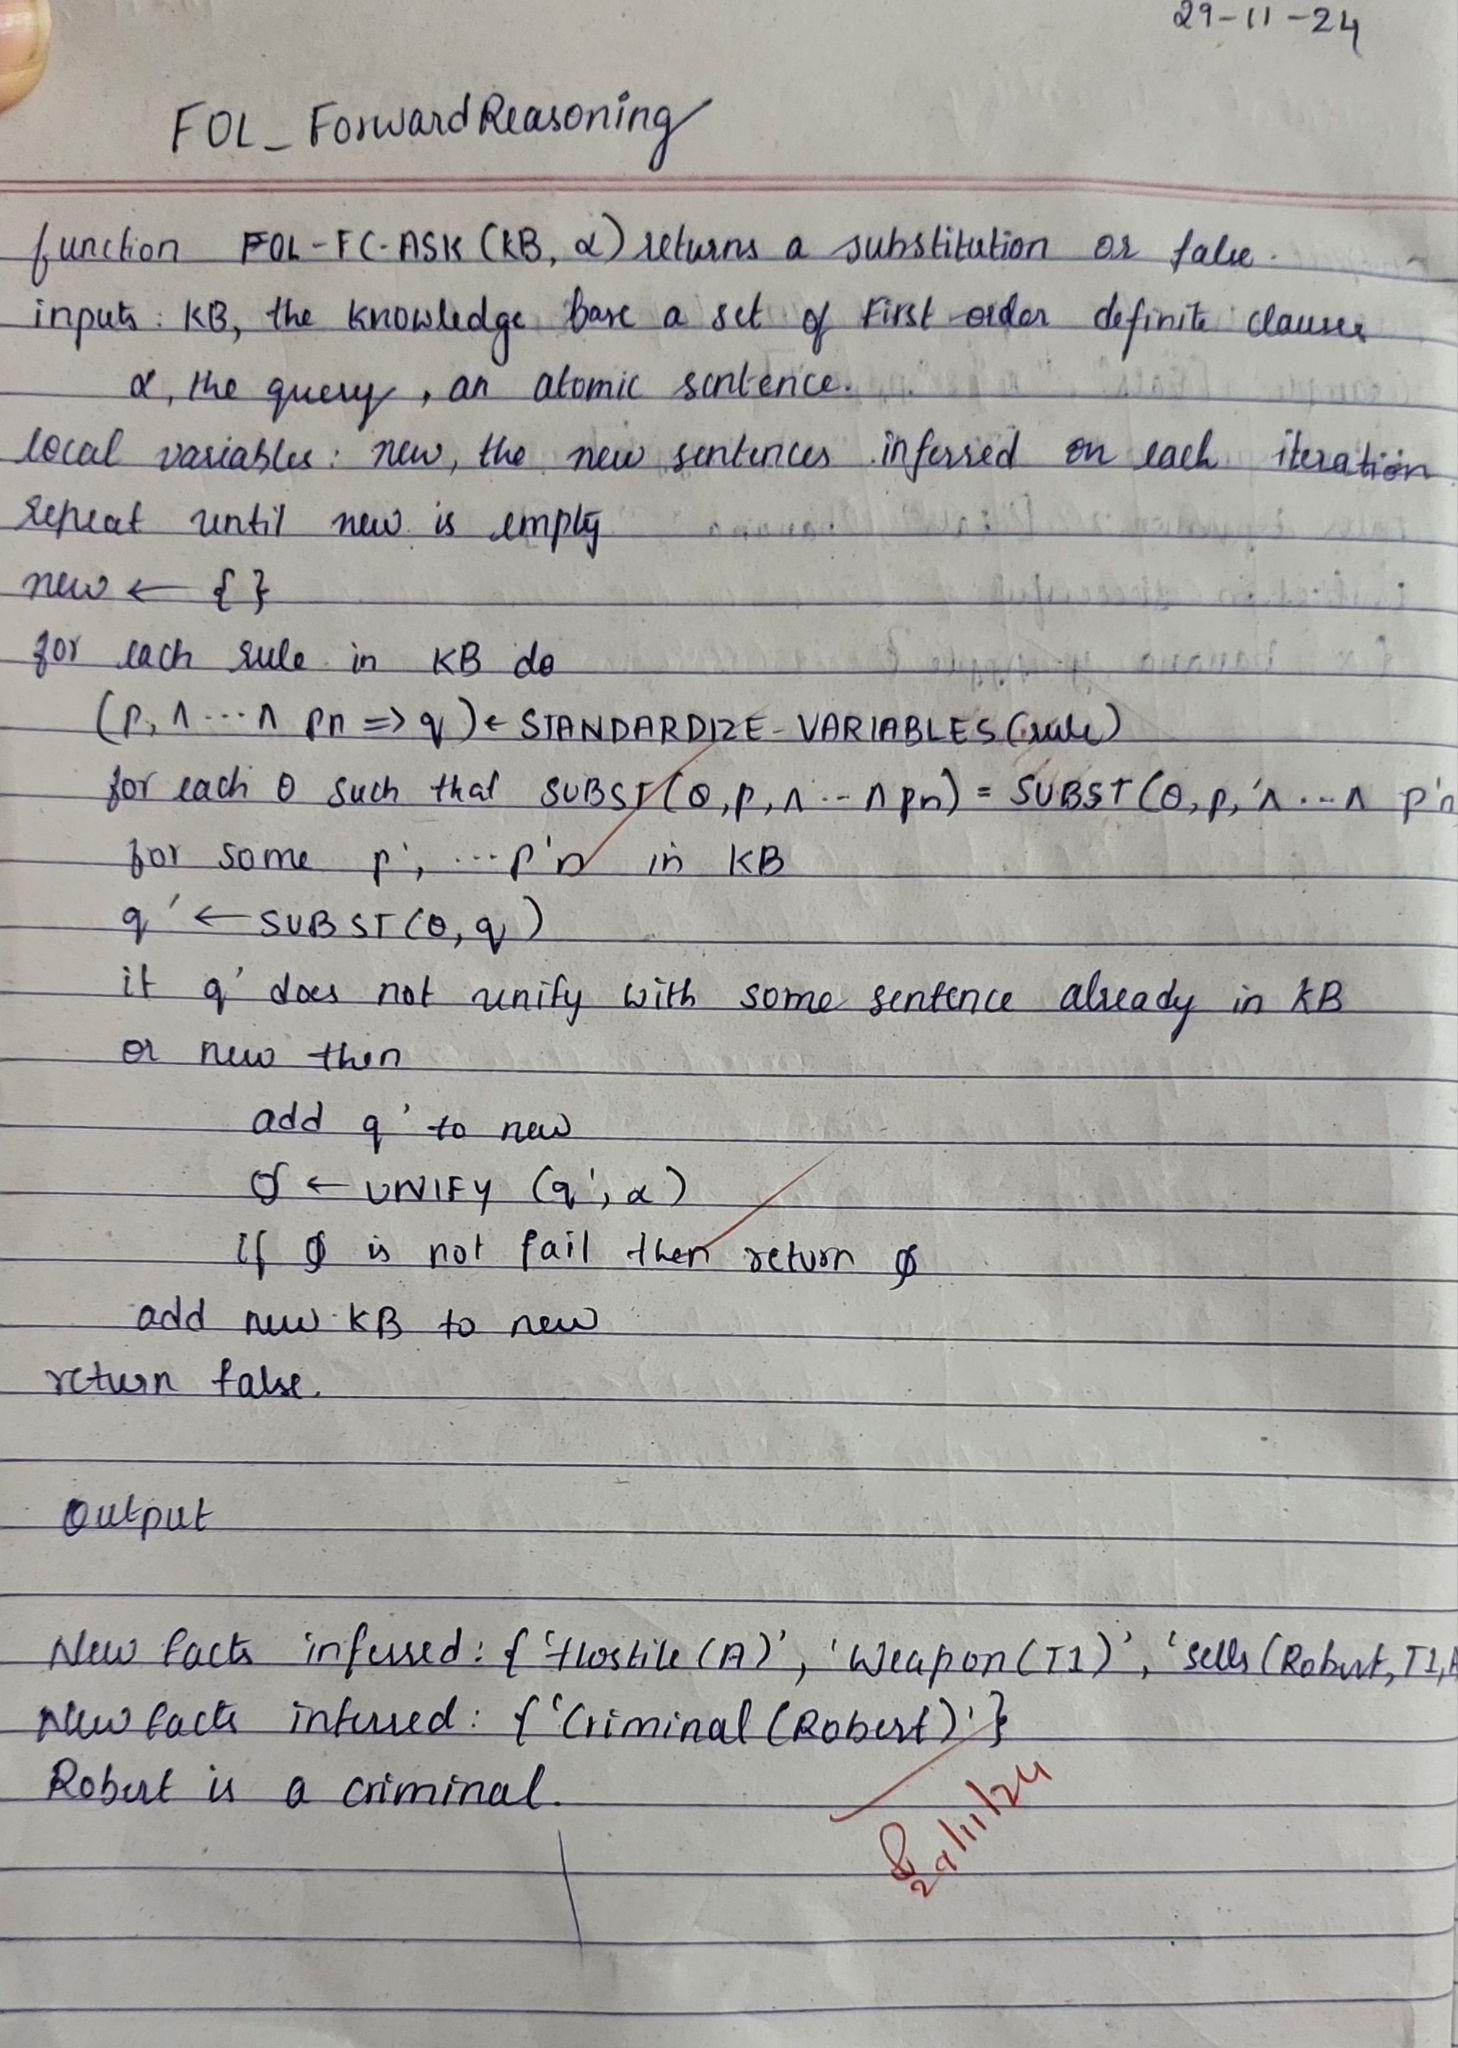 29-11-24
FOL_ForwardReasoning
function FOL-FC-ASK (KB, α) returns a substitution or false.
inputs: KB, the knowledge base a set of first order definite clauses
α, the query, an atomic sentence.
local variables: new, the new sentences inferred on each iteration
repeat until new is empty
new ← { }
for each rule in KB do
(p, ∧ ... ∧ pn => q) ← STANDARDIZE-VARIABLES (rule)
for each θ such that SUBST (θ, p, ∧ ... ∧ pn) = SUBST (θ, p,' ∧ ... ∧ p'n
for some p', ... p'n in KB
q' ← SUBST (θ, q)
if q' does not unify with some sentence already in KB
or new then
add q' to new
∅ ← UNIFY (q', α)
if ∅ is not fail then return ∅
add new KB to new
return false.
Output
New facts inferred: { 'Hostile (A)', 'Weapon (T1)', 'sells (Robert, T1,
New facts inferred: { 'Criminal (Robert)' }
Robert is a criminal.
29/11/24